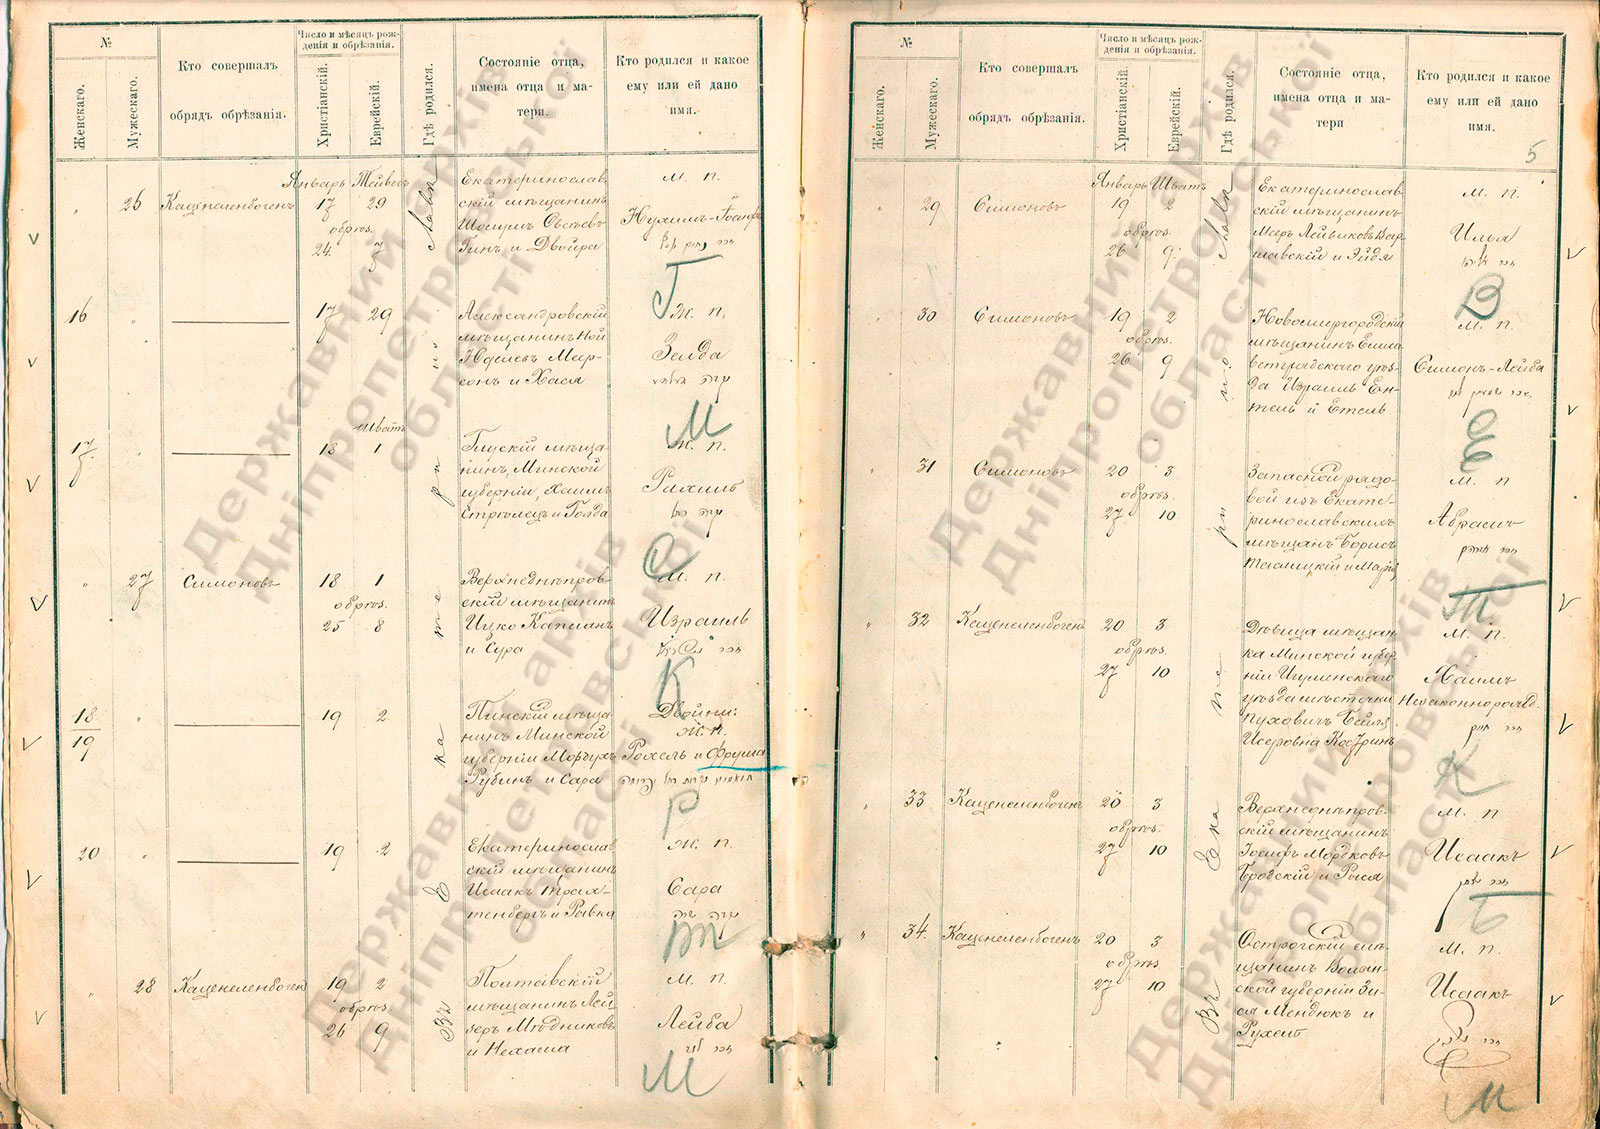 №
Женскаго.
Мужескаго.
Кто совершалъ
обрядъ обрѣзанія.
Число и мѣсяцъ рож-
денія и обрѣзанія.
Христіанскій.
Еврейскій.
Гдѣ родился.
Состояніе отца,
имена отца и ма-
тери.
Кто родился и какое
ему или ей дано
имя.
Въ Екатеринославѣ
25 Каценеленбогенъ
Январь Тейвесъ
17 29
обрѣз.
24 7
Екатеринослав-
скій мѣщанинъ
и Двойра
м. п.
Нухимъ-Іосифъ
Г
16
17 29
Александровскій
мѣщанинъ Ной
Меер-
сонъ и Хася
ж. п.
Зелда
М
17
Шватъ
18 1
Глускій мѣща-
нинъ, Минской
губерніи, Хаимъ
Стрѣлецъ и Голда
ж. п.
Рахиль
С
27 Симоновъ
18 1
обрѣз.
25 8
Верхнеднѣпров-
скій мѣщанинъ
Ицко Капланъ
и Сура
м. п.
Израиль
К
18
19
19 2
Пинскій мѣща-
нинъ Минской
губерніи Мордухъ
Рубинъ и Сара
Двойни:
ж. п.
Рохель и Фрума
Р
20
19 2
Екатеринослав
скій мѣщанинъ
Исаакъ Трах-
тенбергъ и Ривка
ж. п.
Сара
שרה
Тр
28 Каценеленбоген
19 2
обрѣз.
26 9
Полтавскій
мѣщанинъ Лей-
зеръ Мѣдниковъ
и Нехама
м. п.
Лейба
М
№
Женскаго.
Мужескаго.
Кто совершалъ
обрядъ обрѣзанія.
Число и мѣсяцъ рож-
денія и обрѣзанія.
Христіанскій.
Еврейскій.
Гдѣ родился.
Состояніе отца,
имена отца и ма-
тери
Кто родился и какое
ему или ей дано
имя.
5
Въ Екатеринославѣ
29 Симоновъ
Январь Шватъ
19 2
обрѣз.
26 9
Екатеринослав-
скій мѣщанинъ
Мееръ Лейвиковъ Вар-
шавскій и Эйдя
м. п.
Илья
В
30 Симоновъ
19 2
обрѣз.
26 9
Новомиргородскій
мѣщанинъ Елиса-
ветградскаго уѣз-
да Израиль Ен-
тель и Етель
м. п.
Симонъ-Лейба
Е
31 Симоновъ
20 3
обрѣз.
27 10
Запасной рядо-
вой изъ Екате-
ринославскихъ
мѣщанъ Борисъ
Теплицкій и Марія
м. п
Абрамъ
Т
32 Каценеленбогенъ
20 3
обрѣз.
27 10
Дѣвица мѣщан-
ка Минской губер-
ніи Игуменскаго
уѣзда мѣстечка
Пуховичъ Бейля
Исеровна Костринъ
м. п.
Хаимъ
Незаконнорожд.
К
33 Каценеленбогенъ
20 3
обрѣз.
27 10
Верхнеднѣпров-
скій мѣщанинъ
Іосифъ Мордковъ
Бродскій и Рися
м. п.
Исаакъ
Б
34. Каценеленбогенъ
20 3
обрѣз
27 10
Острогскій мѣ-
щанинъ Волын-
ской губерніи Зи-
ся Мендюкъ и
Рухель
м. п.
Исаакъ
М
Державний архів
Дніпропетровської
області